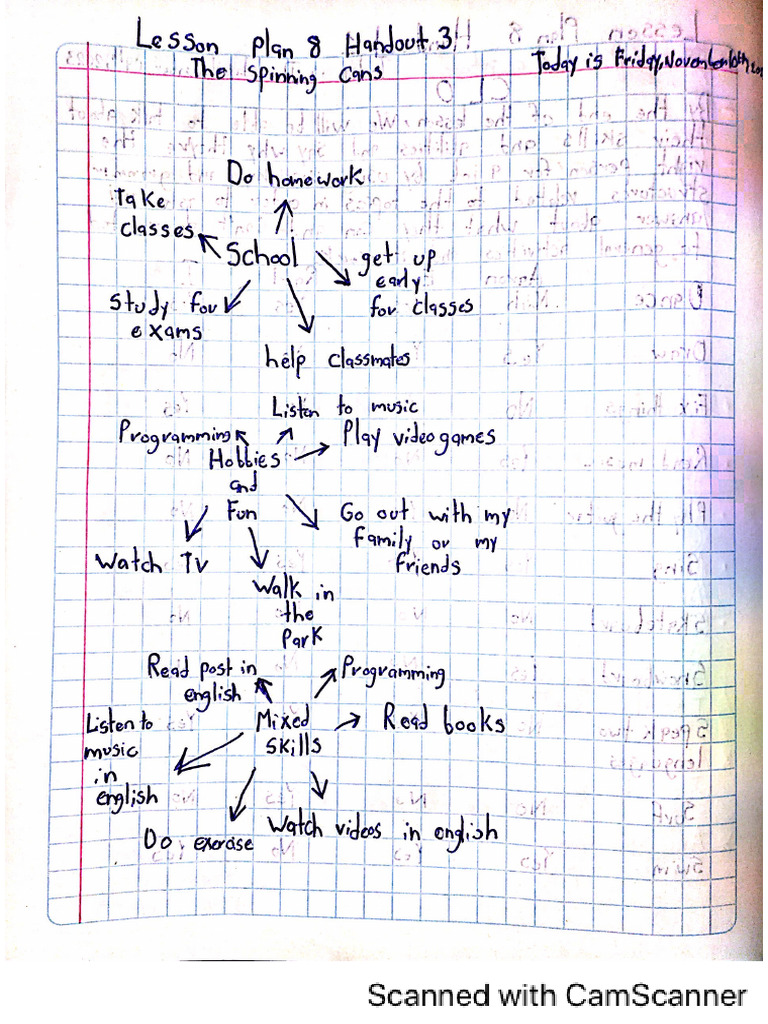 Lesson Plan 8 Handout 3
The Spinning Cans
Today is Friday, November 10th, 
Do homework
Take
classes
School
get up
early
for classes
Study for
exams
help classmates
Listen to music
Programming
Play videogames
Hobbies
and
Fun
Go out with my
family or my
friends
Watch TV
Walk in
the
Park
Read post in
english
Programming
Listen to
music
in
english
Mixed
skills
Read books
Do exercise
Watch videos in english
Scanned with CamScanner